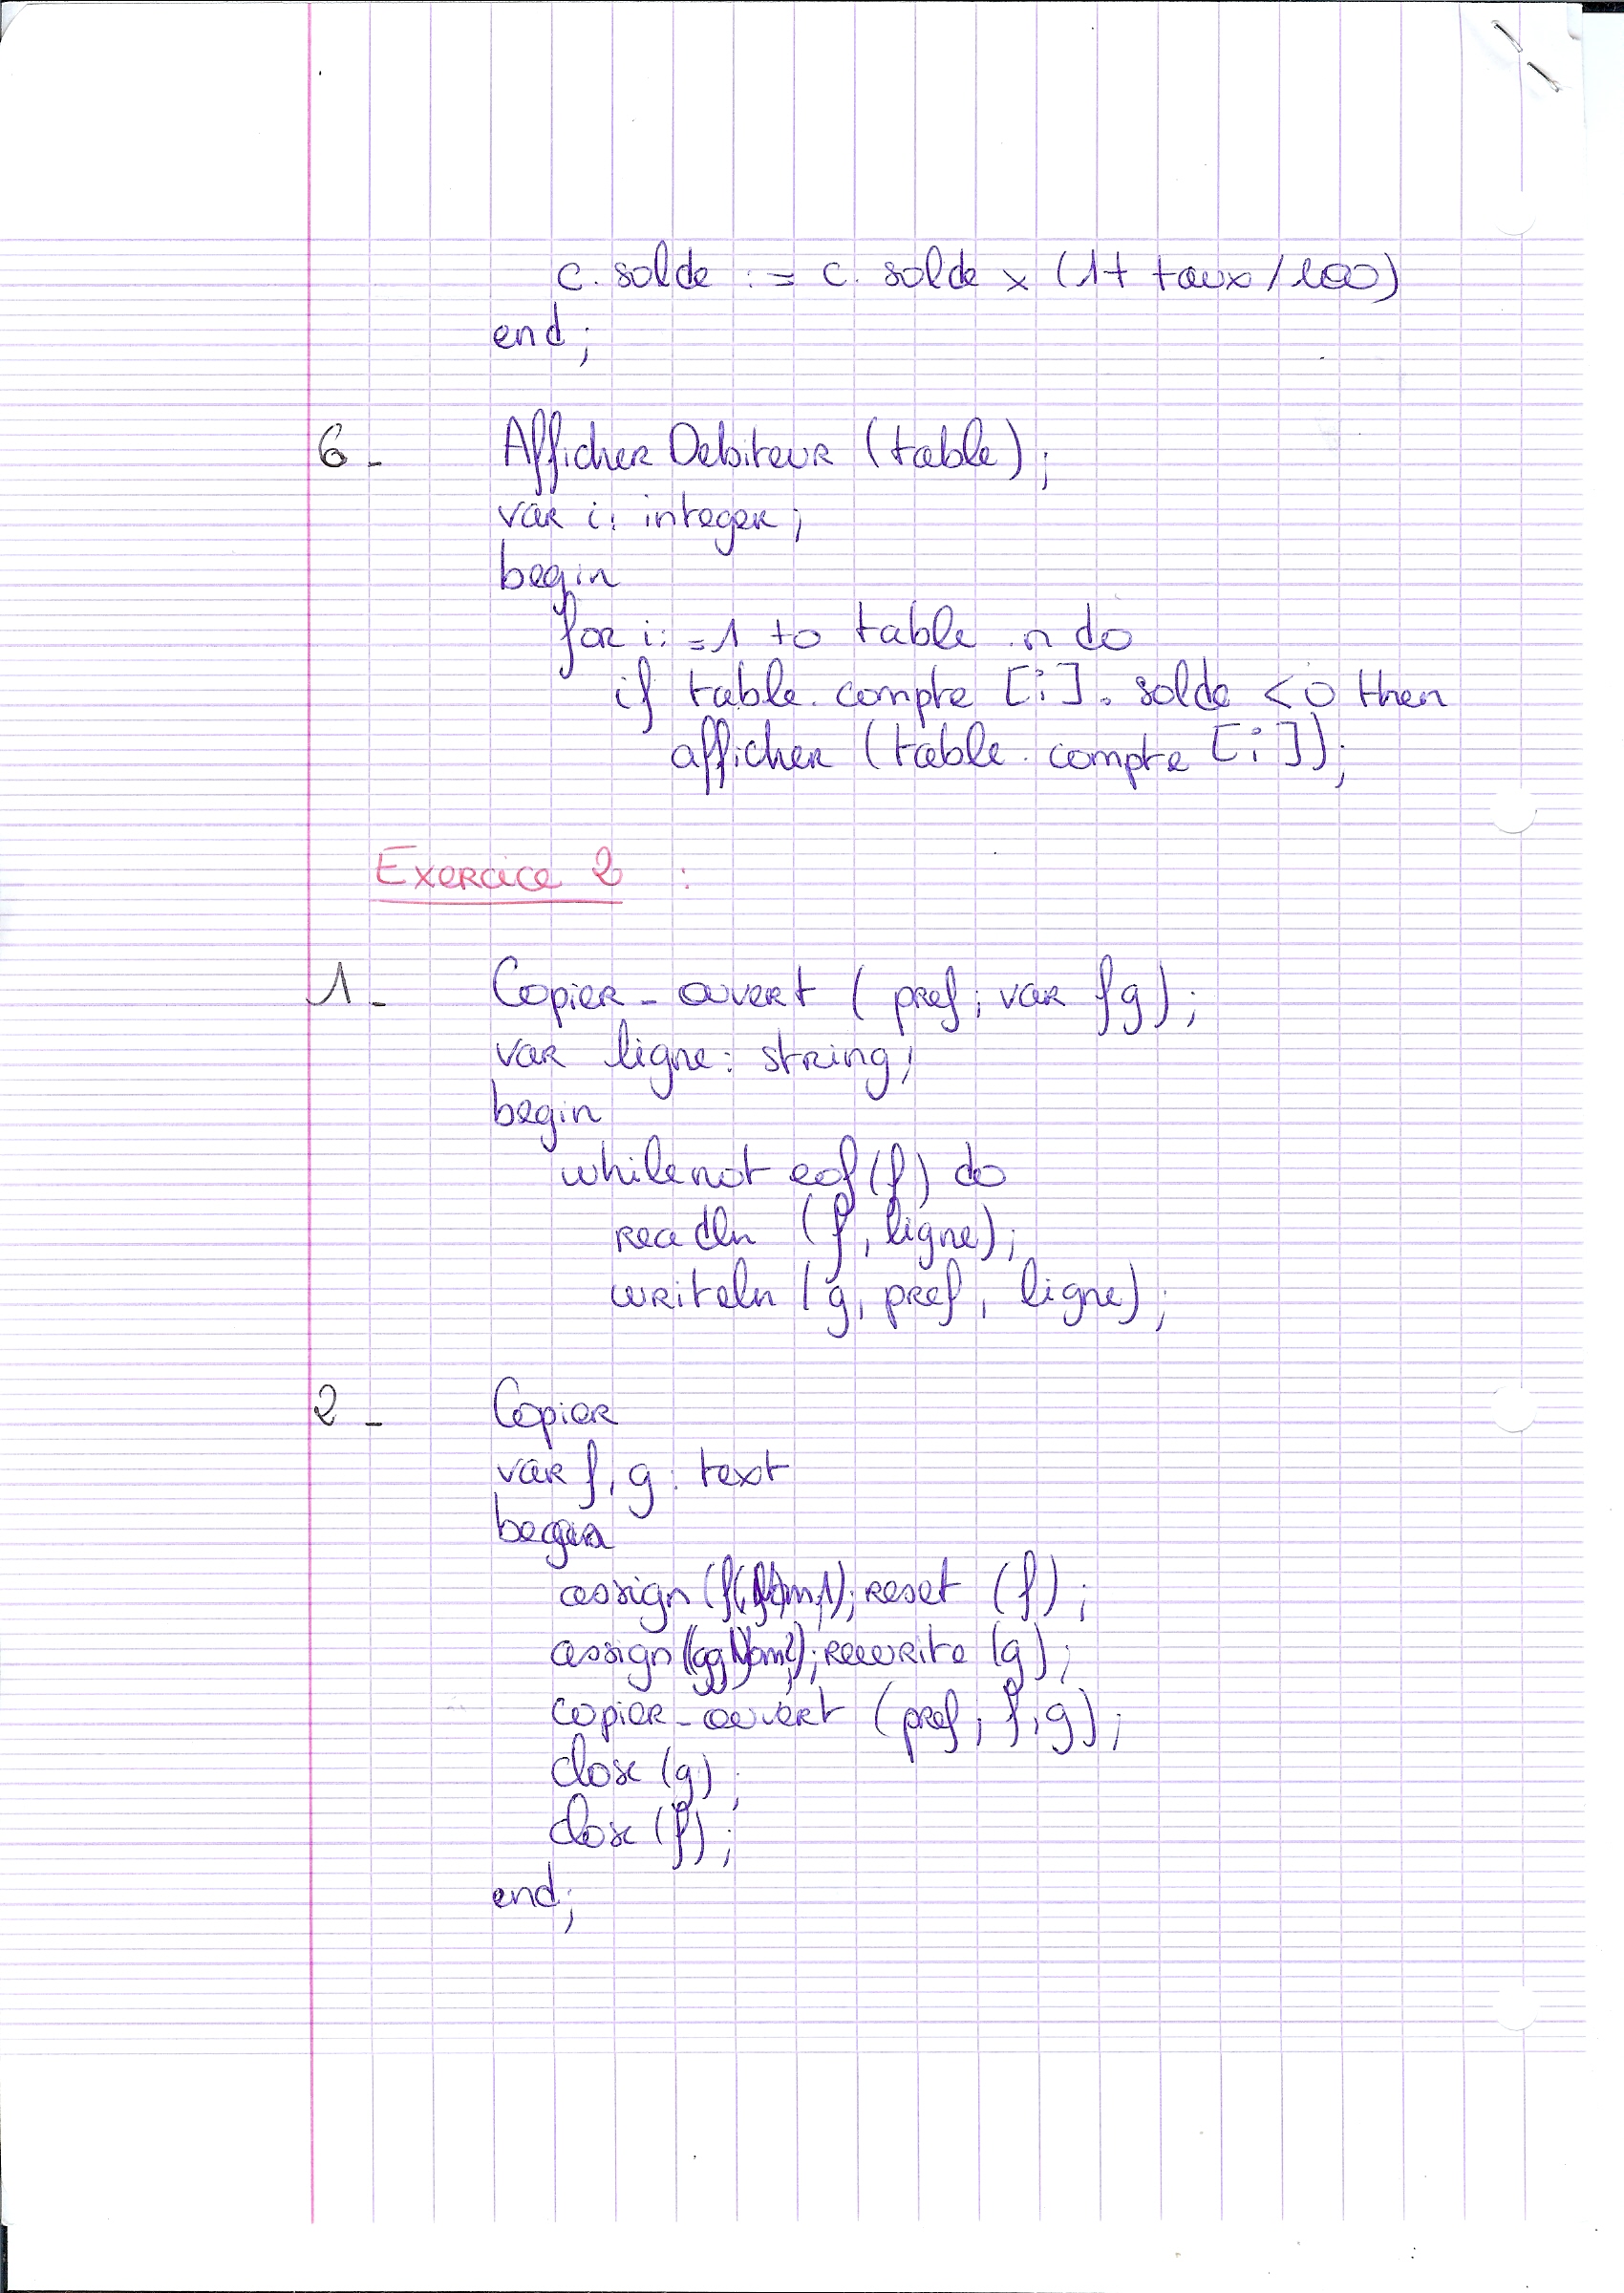 c. solde := c. solde × (1+ taux/100)
end;
6- Afficher Debiteur (table);
var i: integer;
begin
for i:=1 to table.n do
if table.compte [i]. solde <0 then
afficher (table.compte [i]);
Exercice 2 :
1- Copier-ouvert (pref; var f g);
var ligne: string;
begin
while not eof(f) do
readln (f, ligne);
writeln (g, pref, ligne);
2- Copier
var f, g: text
begin
assign (f, Nom1); reset (f);
assign (g, Nom2); rewrite (g);
copier-ouvert (pref; f, g);
close (g);
close (f);
end;